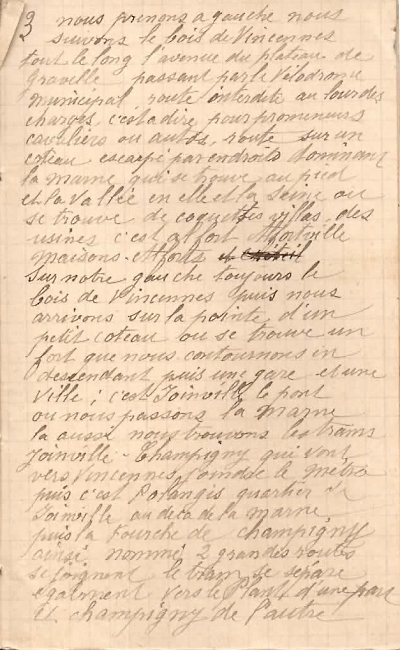 3 nous prenons a gauche nous
suivons le bois de Vincennes
tout le long l'avenue du plateau de
gravelle passant par le Vélodrome
municipal, route interdite au lourdes
charges, c'est a dire pour promeneurs
cavaliers ou autos, route sur un
coteau escarpé par endroits dominant
la marne qui se trouve au pied
et la Vallée en elle et la Seine ou
se trouve de coquettes villas, des
usines c'est alfort Alfortville
maisons-Alforts et Creteil
Sur notre gauche toujours le
bois de Vincennes puis nous
arrivons sur la pointe d'un
petit coteau ou se trouve un
fort que nous contournons en
descendant puis une gare et une
Ville ; c'est Joinville le pont
ou nous passons la marne
la aussi nous trouvons les trams
Joinville-Champigny qui vont
vers Vincennes joindre le métro
puis c'est Polangis quartier de
Joinville au dela de la marne
puis la fourche de champigny
ainsi nommé, 2 grandes routes
se joignent le tram se sépare
egalment vers le Plant d'une part
et champigny de l'autre